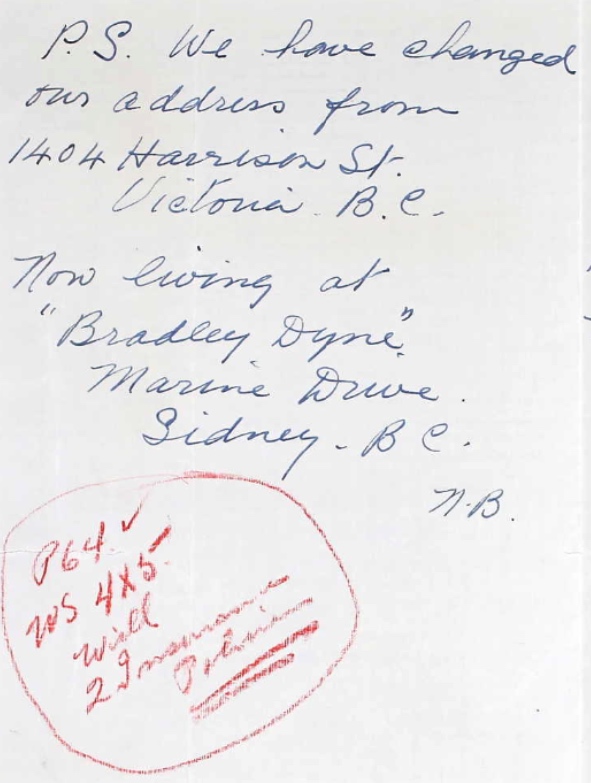 P.S. We have changed
our address from
1404 Harrison St.
Victoria. B.C.
Now living at
"Bradley Dyne"
Marine Drive.
Sidney. B C.
N.B.
P64. ✓
WS 4X5.
Will
2 Insurance
Policies